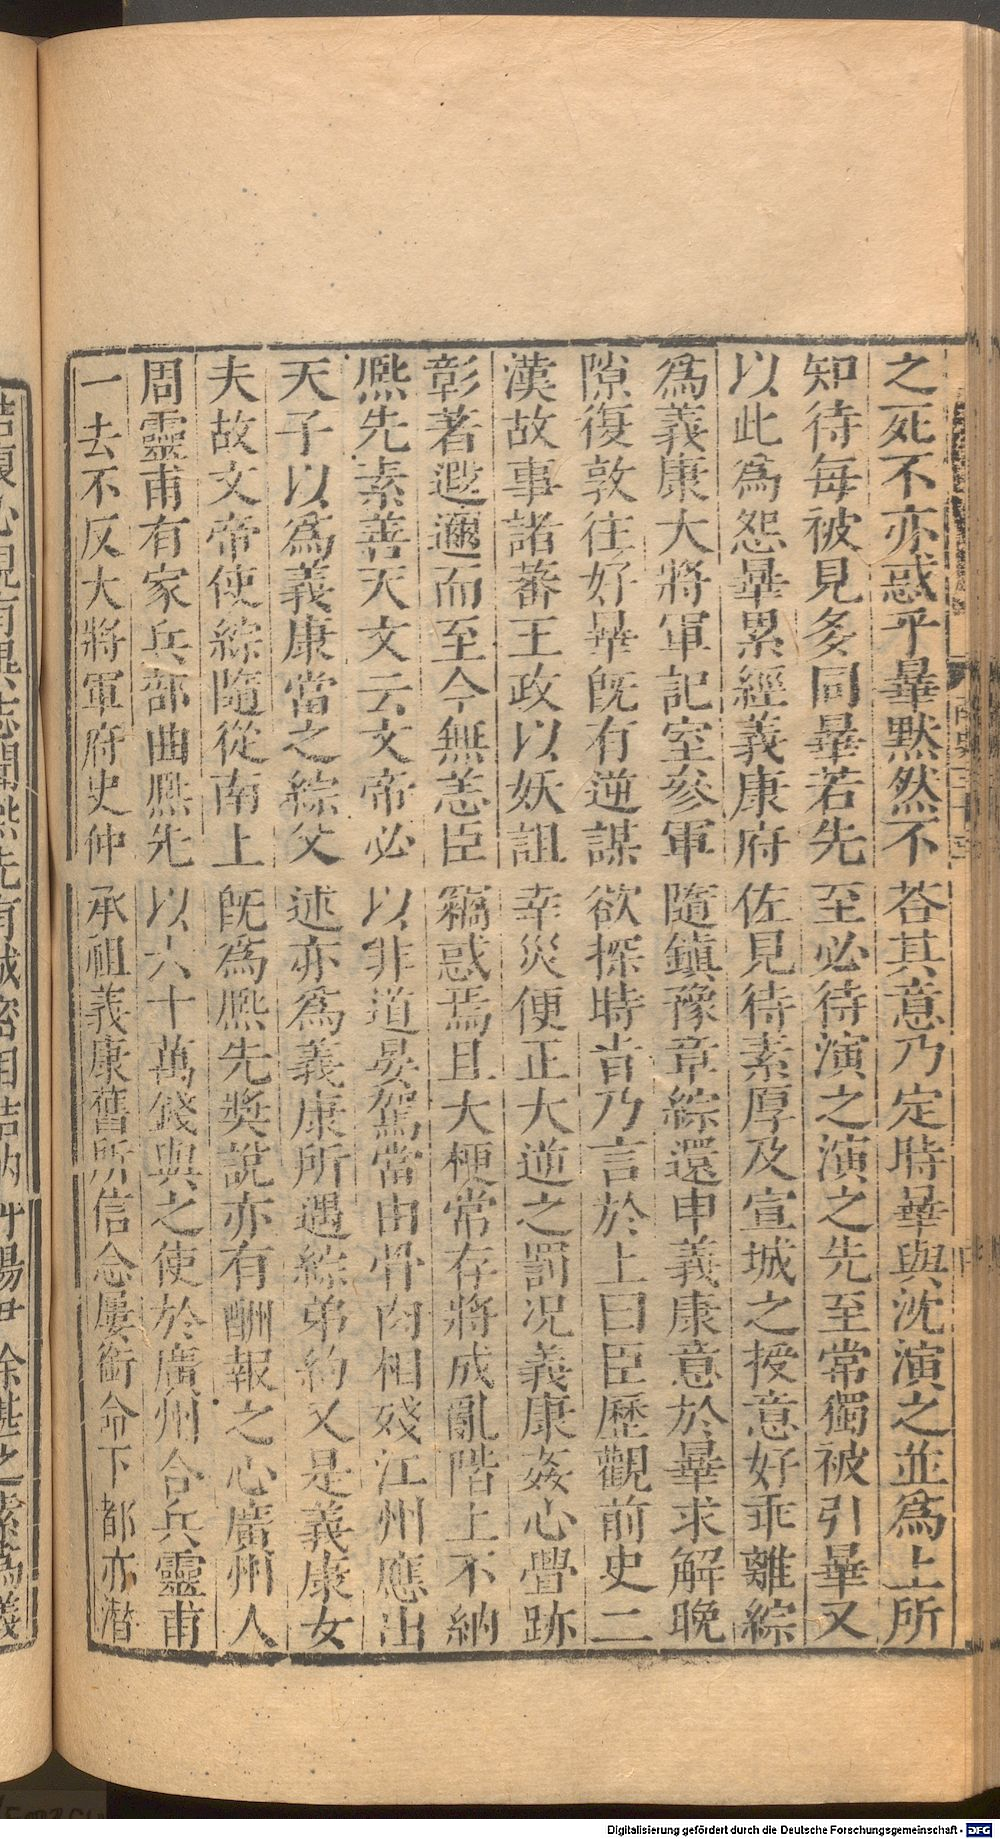 之死不亦惑乎曄默然不荅其意乃定時曄與沈演之並爲上所
知待每被見多同曄若先至必待演之演之先至常獨被引曄又
以此爲怨曄累經義康府佐見待素厚及宣城之授意好乖離綜
爲義康大將軍記室參軍隨鎭豫章綜還申義康意於曄求解晚
隙復敦往好曄旣有逆謀欲探時旨乃言於上曰臣歷觀前史二
漢故事諸蕃王政以妖詛幸災便正大逆之罰况義康姦心釁跡
彰著遐邇而至今無恙臣竊惑焉且大梗常存將成亂階上不納
熈先素善天文云文帝必以非道晏駕當由骨肉相殘江州應出
天子以爲義康當之綜父述亦爲義康所遇綜弟約又是義康女
夫故文帝使綜隨從南上旣爲熈先奬說亦有酬報之心廣州人
周靈甫有家兵部曲熈先以六十萬錢與之使於廣州合兵靈甫
一去不反大將軍府史仲承祖義康舊所信念屢銜命下都亦潛
Digitalisierung gefördert durch die Deutsche Forschungsgemeinschaft - DFG